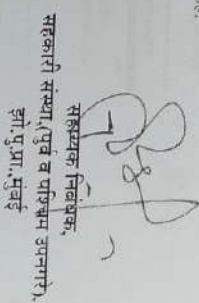 सहाय्यक निबंधक,
सहकारी संस्था,(पुर्व व पश्चिम उपनगरे).
झो.पु.प्रा.,मुंबई